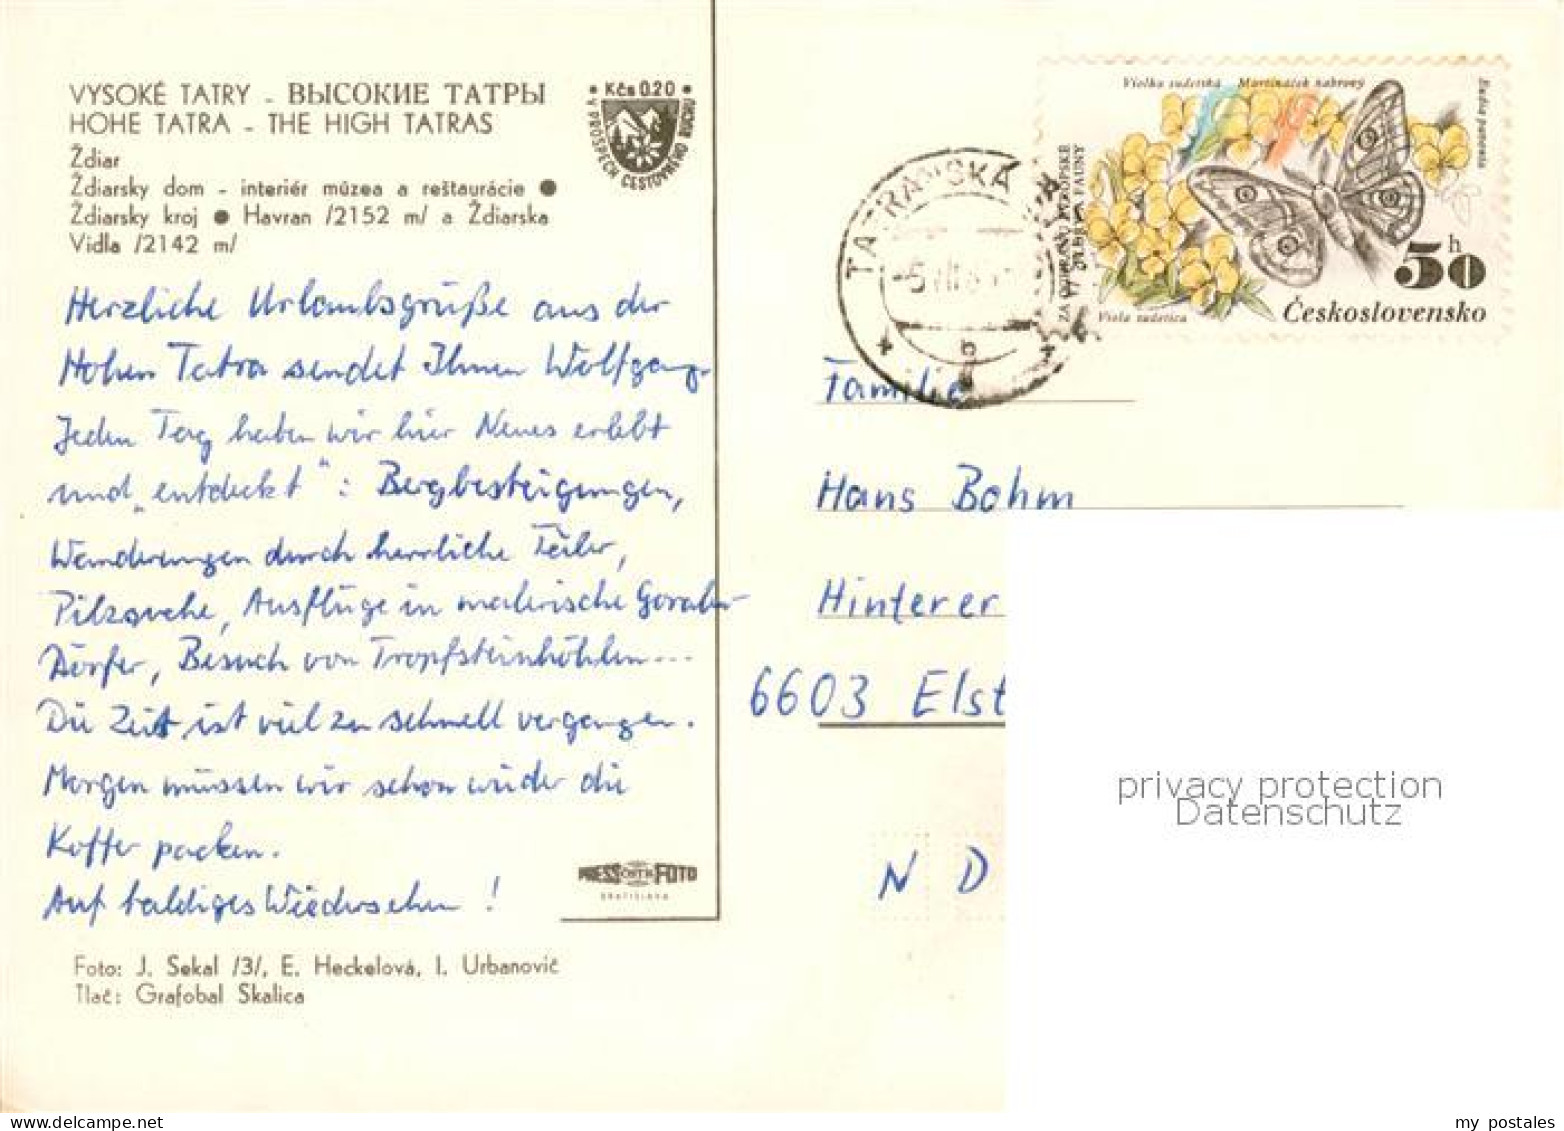 VYSOKÉ TATRY - ВЫСОКИЕ ТАТРЫ
HOHE TATRA - THE HIGH TATRAS
Ždiar
Ždiarsky dom - interiér múzea a reštaurácie ●
Ždiarsky kroj ● Havran /2152 m/ a Ždiarska
Vidla /2142 m/
• Kčs 0.20 •
V PROSPECH CESTOVNÉHO RUCHU
Herzliche Urlaubsgrüße aus der
Hohen Tatra sendet Ihnen Wolfgang.
Jeden Tag haben wir hier Neues erlebt
und „entdeckt“: Bergbesteigungen,
Wanderungen durch herrliche Täler,
Pilzsuche, Ausflüge in malerische Goralen-
Dörfer, Besuch von Tropfsteinhöhlen...
Die Zeit ist viel zu schnell vergangen.
Morgen müssen wir schon wieder die
Koffer packen.
Auf baldiges Wiedersehen!
PRESSFOTO
BRATISLAVA
Foto: J. Sekal /3/, E. Heckelová, I. Urbanovič
Tlač: Grafobal Skalica
Violka sudetská Martináček nabrový
Viola sudetica
50 h
Československo
TATRANSKÁ
b
Familie
Hans Bohm
Hinterer
6603 Elst
N D
privacy protection
Datenschutz
www.delcampe.net
my_postales